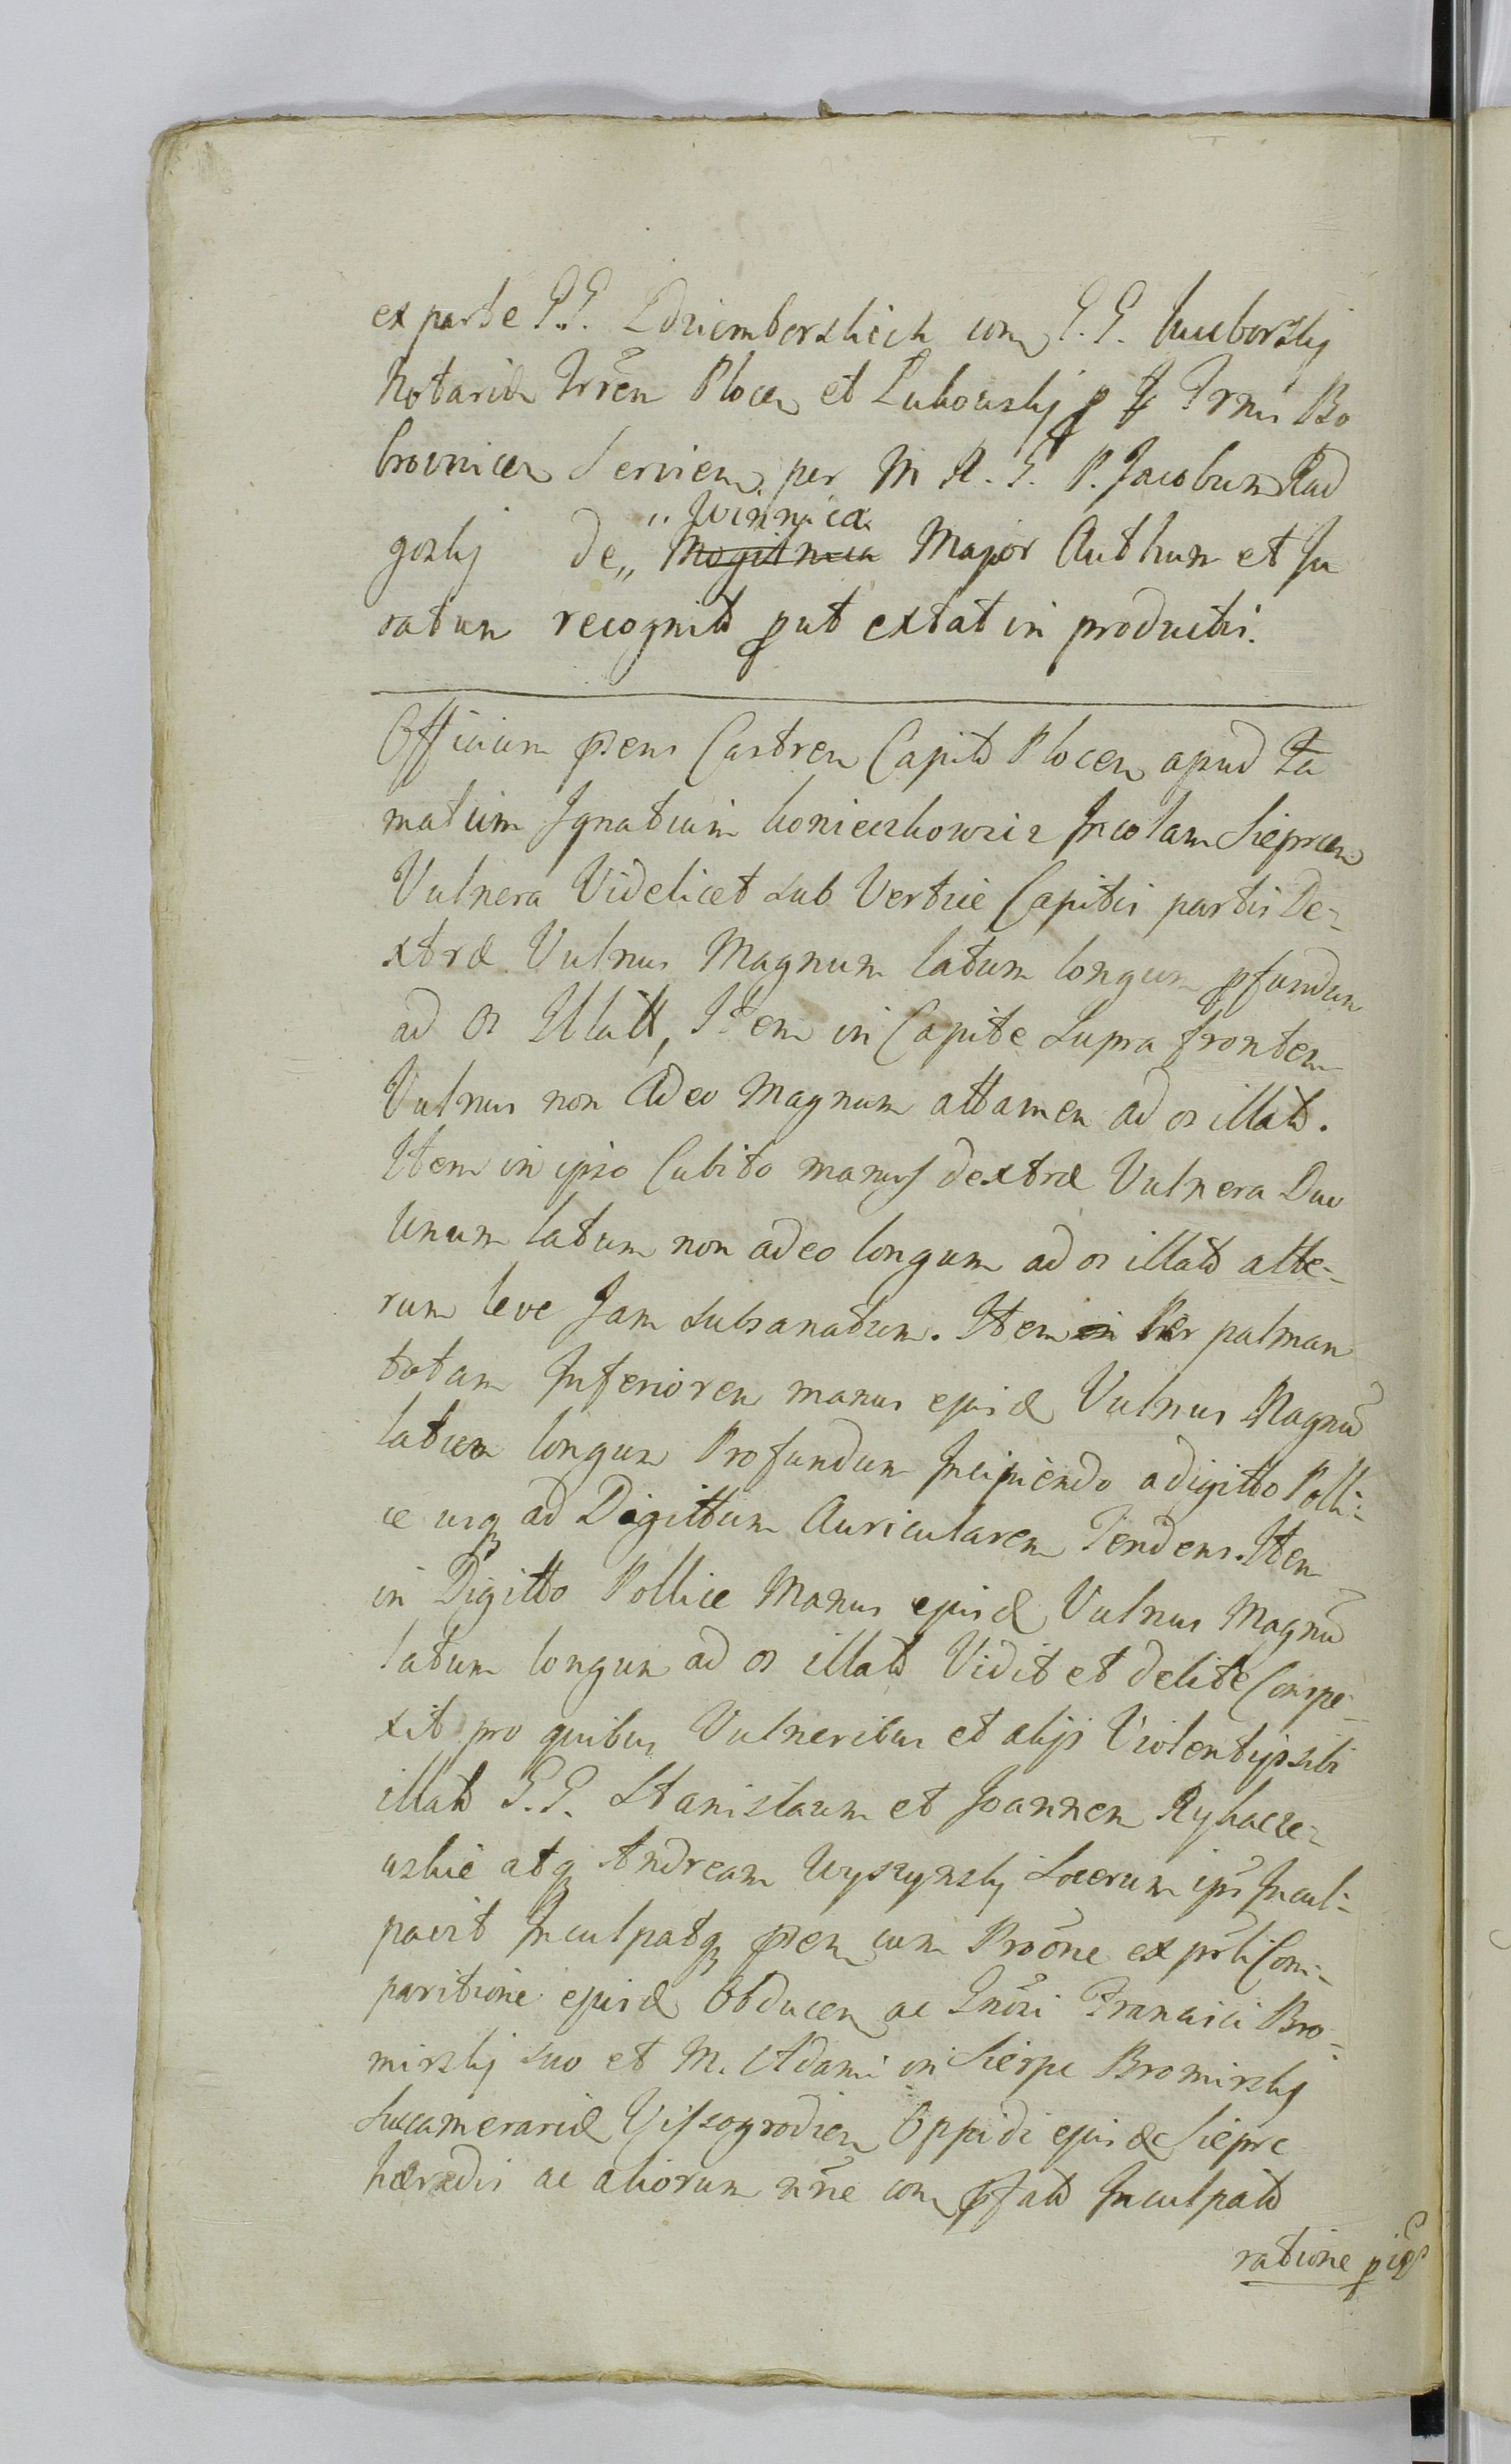 ex parte G.G. Zdziemborskich con G.G. Kuuborskj
Notariu Trrēn Plocen et Lukowskj p Jg Frnis Bo
brounicen Servien. per M R. G. P. Jacobum Rad
goskj de „ Mogilnica Major Authum et Ju
„ Winnica
ratum recognitt put extat in productis.
Officium psens Castren Capitt Plocen apud Fa
matum Ignatium Konieczkowicz Incolam Sieprcen
Vulnera Videlicet sub Vertice Capitis partis De=
xtræ Vulnus Magnum latum longum pfundum
ad os Illatt, Item in Capite Supra frontem
Vulnus non Adeo Magnum attamen ad os illatt.
Item in ipso Cubito manus dextræ Vulnera Duo
Unum latum non adeo longum ad os illatt alte=
rum leve Jam subsanatum. Item in Per palmam
totam Inferiorem manus ejusd Vulnus Magnū
latum longum Profundum Incipiendo a digitto Polli=
ce usq ad Digittum Auricularem Tendens. Item
in Digitto Pollice Manus ejusd Vulnus Magnū
latum longum ad os illatt Vidit et debite Conspe=
xit pro quibus Vulneribus et alijs Violentijs sibi
illatt G.G. Stanislaum et Joannem Rybacze=
wskie atq Andream Wyszynskj Socerum ips Incul=
pavit Inculpatq psen cum Prōne ex psti Com=
paritione ejusd Obducen ac Gnōsi Francisci Bro=
mirskj suo et M. Adami in Sierpc Bromirskj
Succamerarid Vissogrodien Oppidi ejusd Sieprc
hæredis ac aliorum nr̄ne con pfatt Inculpatt
ratione pios